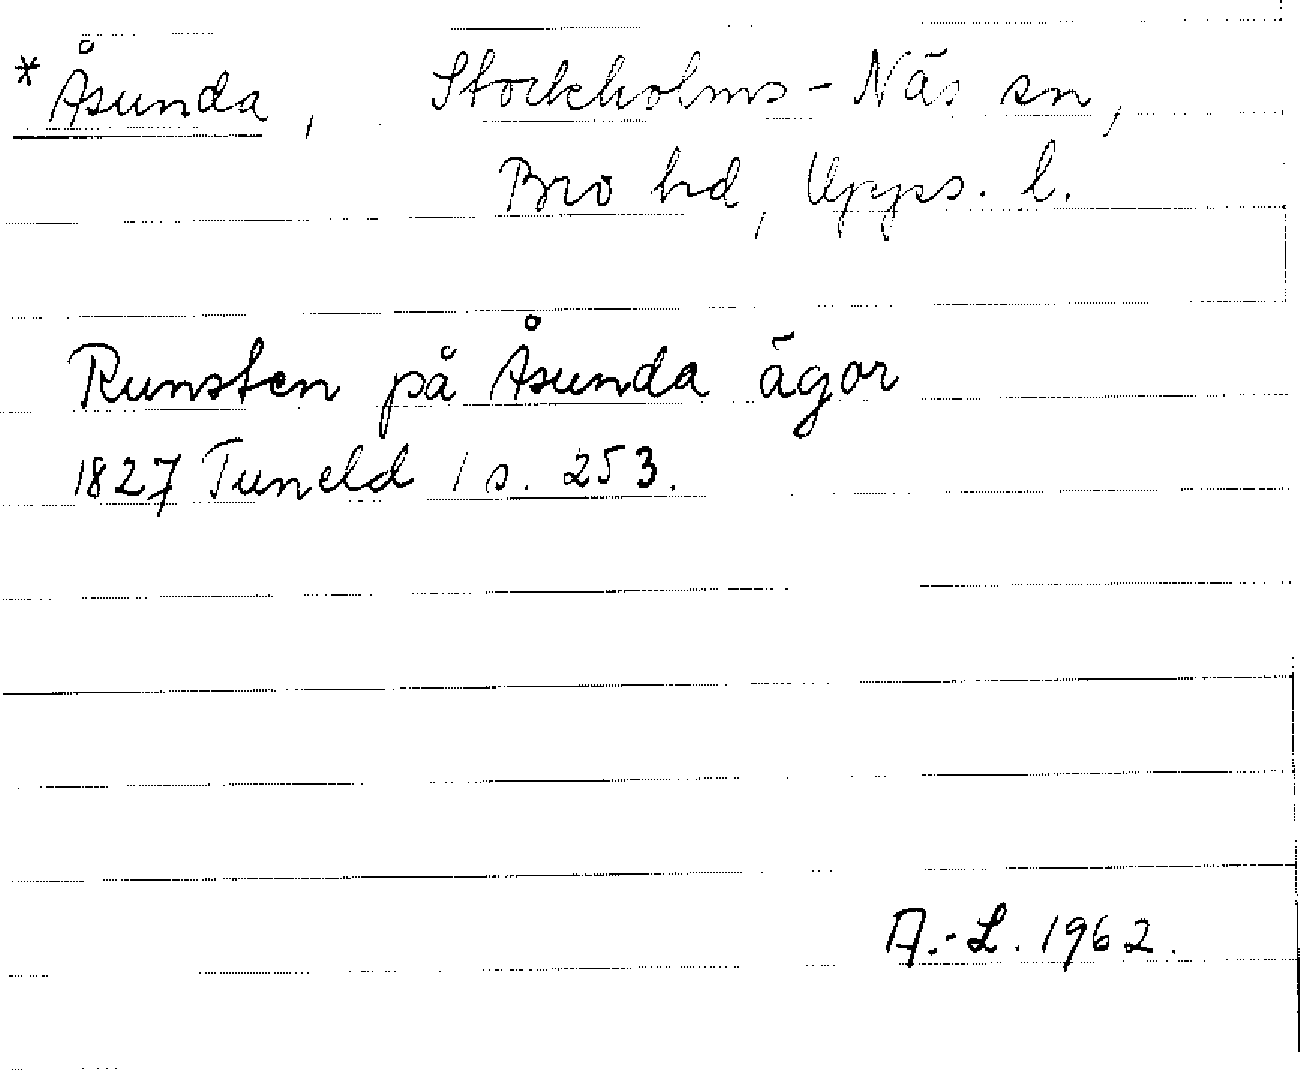 * Åsunda, Stockholms-Näs sn,
Bro hd, Upps. l.
Runsten på Åsunda ägor
1827 Tuneld 1 s. 253.
A.-L. 1962.